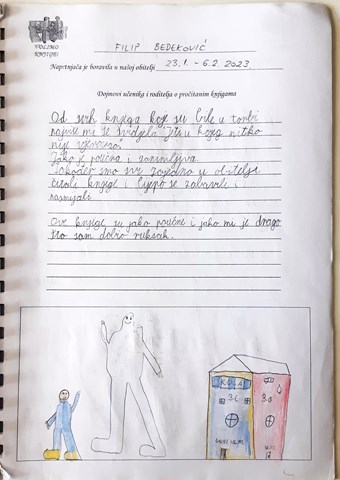 VOLIMO
KNJIGE!
FILIP BEDEKOVIĆ
Naprtnjača je boravila u našoj obitelji 23.1. - 6.2. 2023.
Dojmovi učenika i roditelja o pročitanim knjigama
Od svih knjiga koje su bile u torbi
najviše mi se svidjela "Ljeta kojeg nitko
nije
Jako je poučna i zanimljiva.
Također smo svi zajedno u obitelji
čitali knjige i lijepo se zabavili i
nasmijali.
Ove knjige su jako poučne i jako mi je drago
što sam dobio ruksak.
3.c
3.a